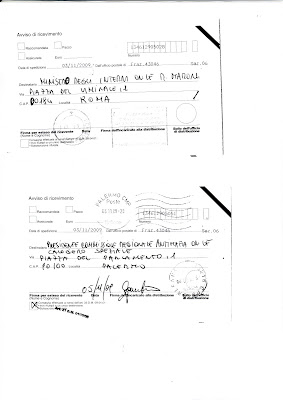 Avviso di ricevimento
Raccomandata Pacco
Assicurata Euro Numero
Data di spedizione 03/11/2009 Dall'ufficio postale di Fraz.43046 Sez.06
Destinatario MINISTRO DEGLI INTERNI ON.LE R. MARONI
Via PIAZZA DEL VIMINALE, 1
C.A.P. 00184 Località ROMA
Firma per esteso del ricevente Data Firma dell'incaricato alla distribuzione Bollo dell'ufficio
(Nome e Cognome) di distribuzione
Avviso di ricevimento
Raccomandata Pacco
Assicurata Euro Numero
Data di spedizione 03/11/2009 Dall'ufficio postale di Fraz.43046 Sez.06
Destinatario PRESIDENTE COMMISSIONE REGIONALE ANTIMAFIA ON.LE
CALOGERO SPEZIALE
Via PIAZZA DEL PARLAMENTO, 1
C.A.P. 90100 Località PALERMO
05/11/09
Firma per esteso del ricevente Data Firma dell'incaricato alla distribuzione Bollo dell'ufficio
(Nome e Cognome) di distribuzione